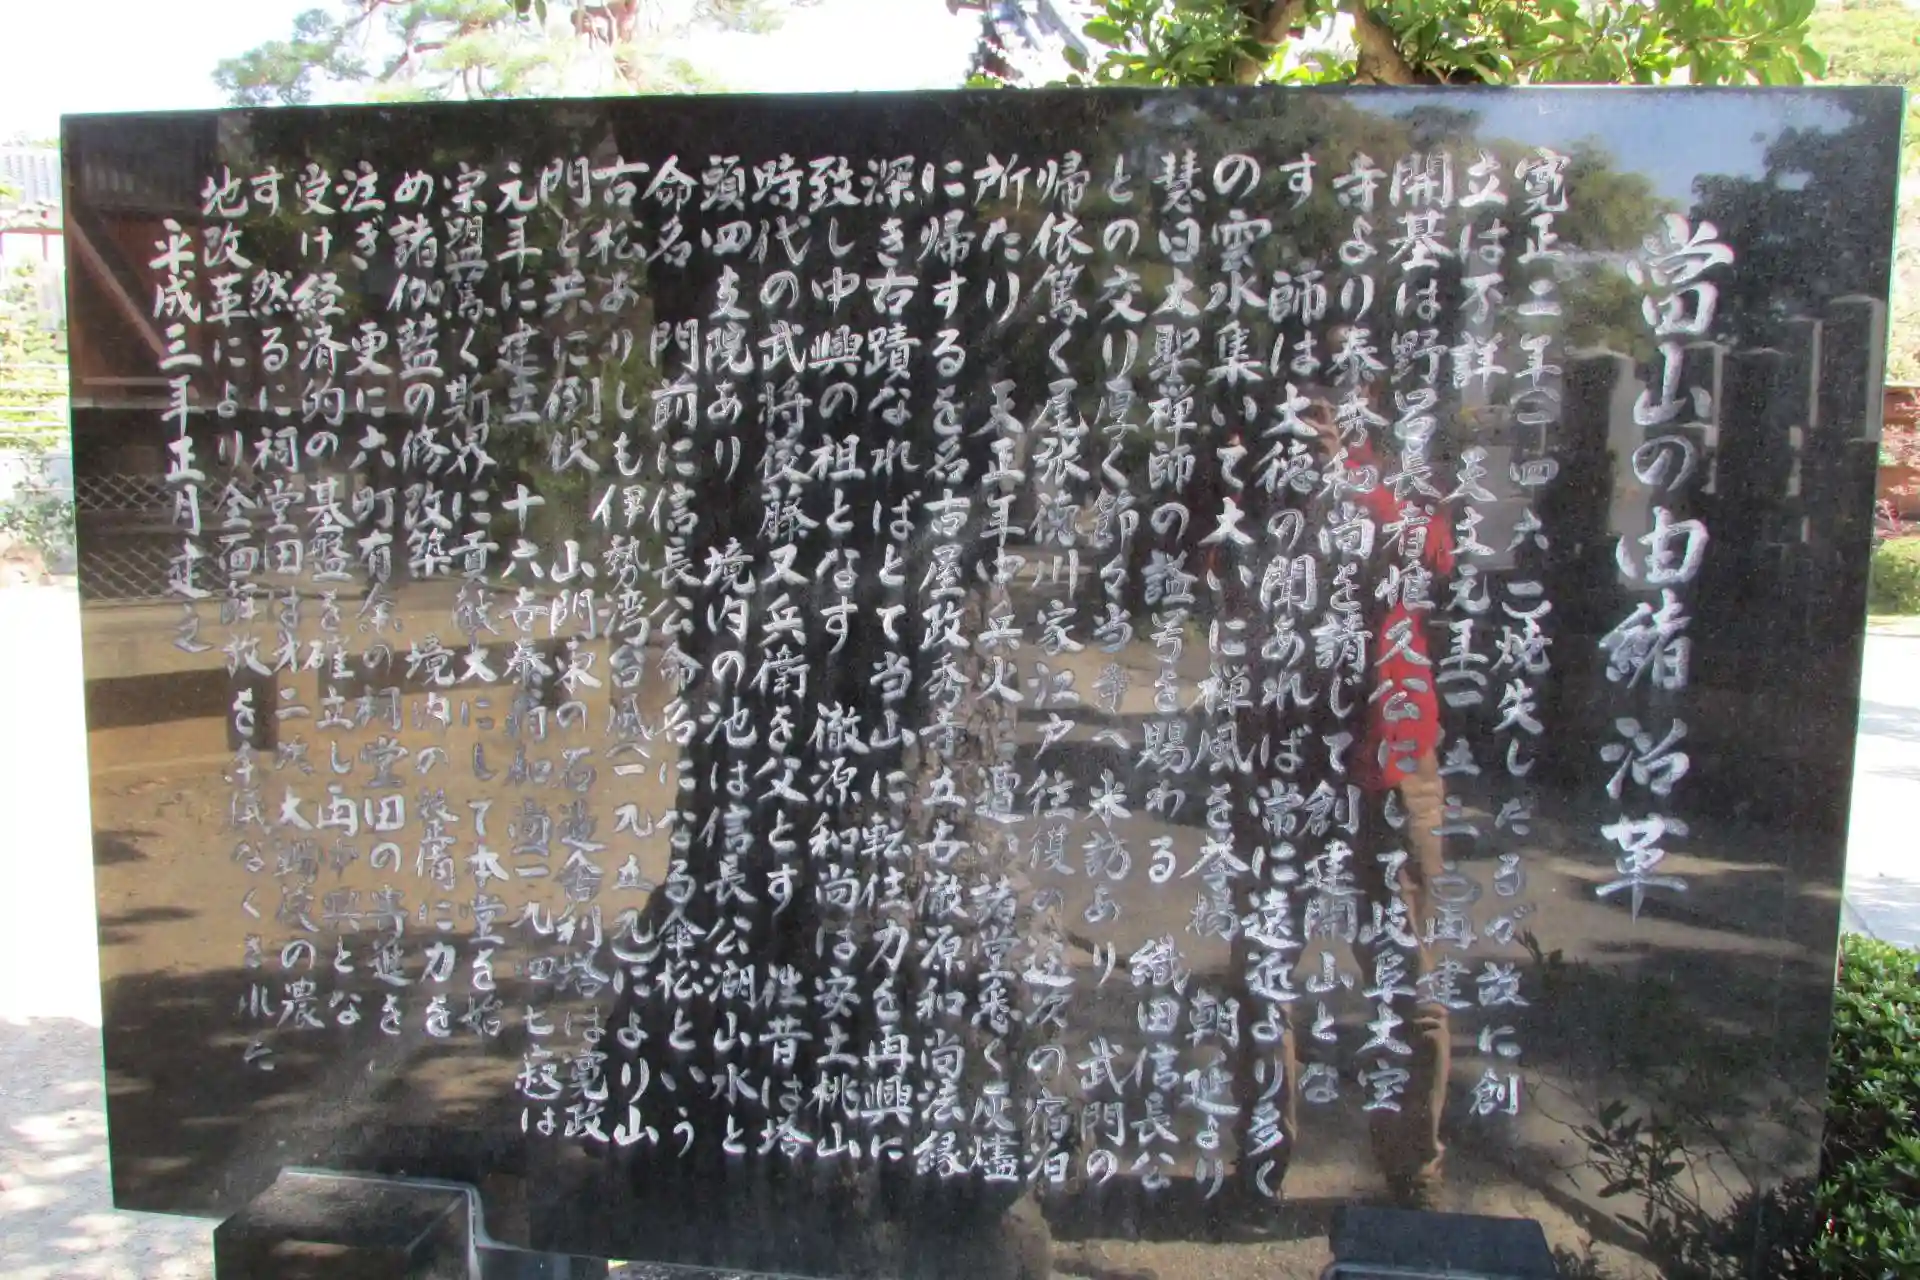 當山の由緒沿革
寛正二年(一四六一)焼失したるが故に創
立は不詳 天文元年(一五三二)再建
開基は野呂長者惟久公にして岐阜大宝
寺より泰秀和尚を請じて創建開山とな
す 師は大徳の聞あれば常に遠近より多く
の雲水集いて大いに禅風を挙揚 朝廷より
慧日大聖禅師の諡号を賜わる 織田信長公
との交り厚く節々当寺へ来訪あり 武門の
帰依篤く尾張徳川家江戸往復の途次の宿泊
所たり 天正年中兵火に遭い諸堂悉く灰燼
に帰するを名古屋政秀寺五古徹源和尚法縁
深き古蹟なればとて当山に転住力を再興に
致し中興の祖となす 徹源和尚は安土桃山
時代の武将後藤又兵衛を父とす 往昔は塔
頭四支院あり 境内の池は信長公湖山水と
命名 門前に信長公命名になる傘松という
古松ありしも伊勢湾台風(一九五九)により山
門と共に倒伏 山門東の石造舎利塔は寛政
元年に建立 十六世泰嶺和尚(一九四七寂)は
宗盟篤く斯界に貢献大にして本堂を始
め諸伽藍の修改築 境内の整備に力を
注ぎ 更に六町有余の祠堂田の寄進を
受け経済的の基盤を確立し再中興とな
す 然るに祠堂田は才二次大戦後の農
地改革により全面解放を余儀なくされた
平成三年正月建之